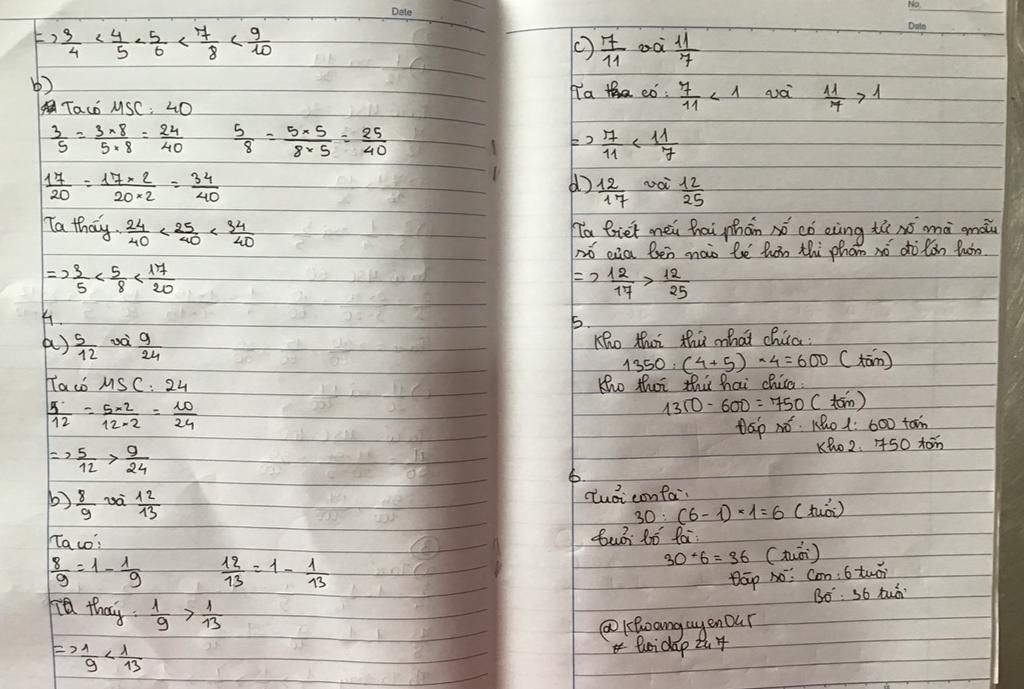 Date
=> 3/4 < 4/5 < 5/6 < 7/8 < 9/10
b)
Ta có MSC: 40
3/5 = 3×8/5×8 = 24/40 5/8 = 5×5/8×5 = 25/40
17/20 = 17×2/20×2 = 34/40
Ta thấy 24/40 < 25/40 < 34/40
=> 3/5 < 5/8 < 17/20
4.
a) 5/12 và 9/24
Ta có MSC: 24
5/12 = 5×2/12×2 = 10/24
=> 5/12 > 9/24
b) 8/9 và 12/13
Ta có:
8/9 = 1 - 1/9 12/13 = 1 - 1/13
Ta thấy: 1/9 > 1/13
=> 1/9 < 1/13
No.
Date
c) 7/11 và 11/7
Ta có: 7/11 < 1 và 11/7 > 1
=> 7/11 < 11/7
d) 12/17 và 12/25
Ta biết nếu hai phân số có cùng tử số mà mẫu
số của bên nào bé hơn thì phân số đó lớn hơn.
=> 12/17 > 12/25
5.
Kho thóc thứ nhất chứa:
1350 : (4+5) × 4 = 600 (tấn)
Kho thóc thứ hai chứa:
1350 - 600 = 750 (tấn)
Đáp số: Kho 1: 600 tấn
Kho 2: 750 tấn
6.
Tuổi con là:
30 : (6-1) × 1 = 6 (tuổi)
Tuổi bố là:
30 + 6 = 36 (tuổi)
Đáp số: Con: 6 tuổi
Bố: 36 tuổi
@Khoanguyen045
# hoidap247